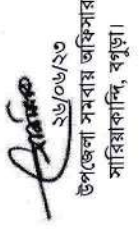 ২৬/০৬/২৩
উপজেলা সমবায় অফিসার
সারিয়াকান্দি, বগুড়া।